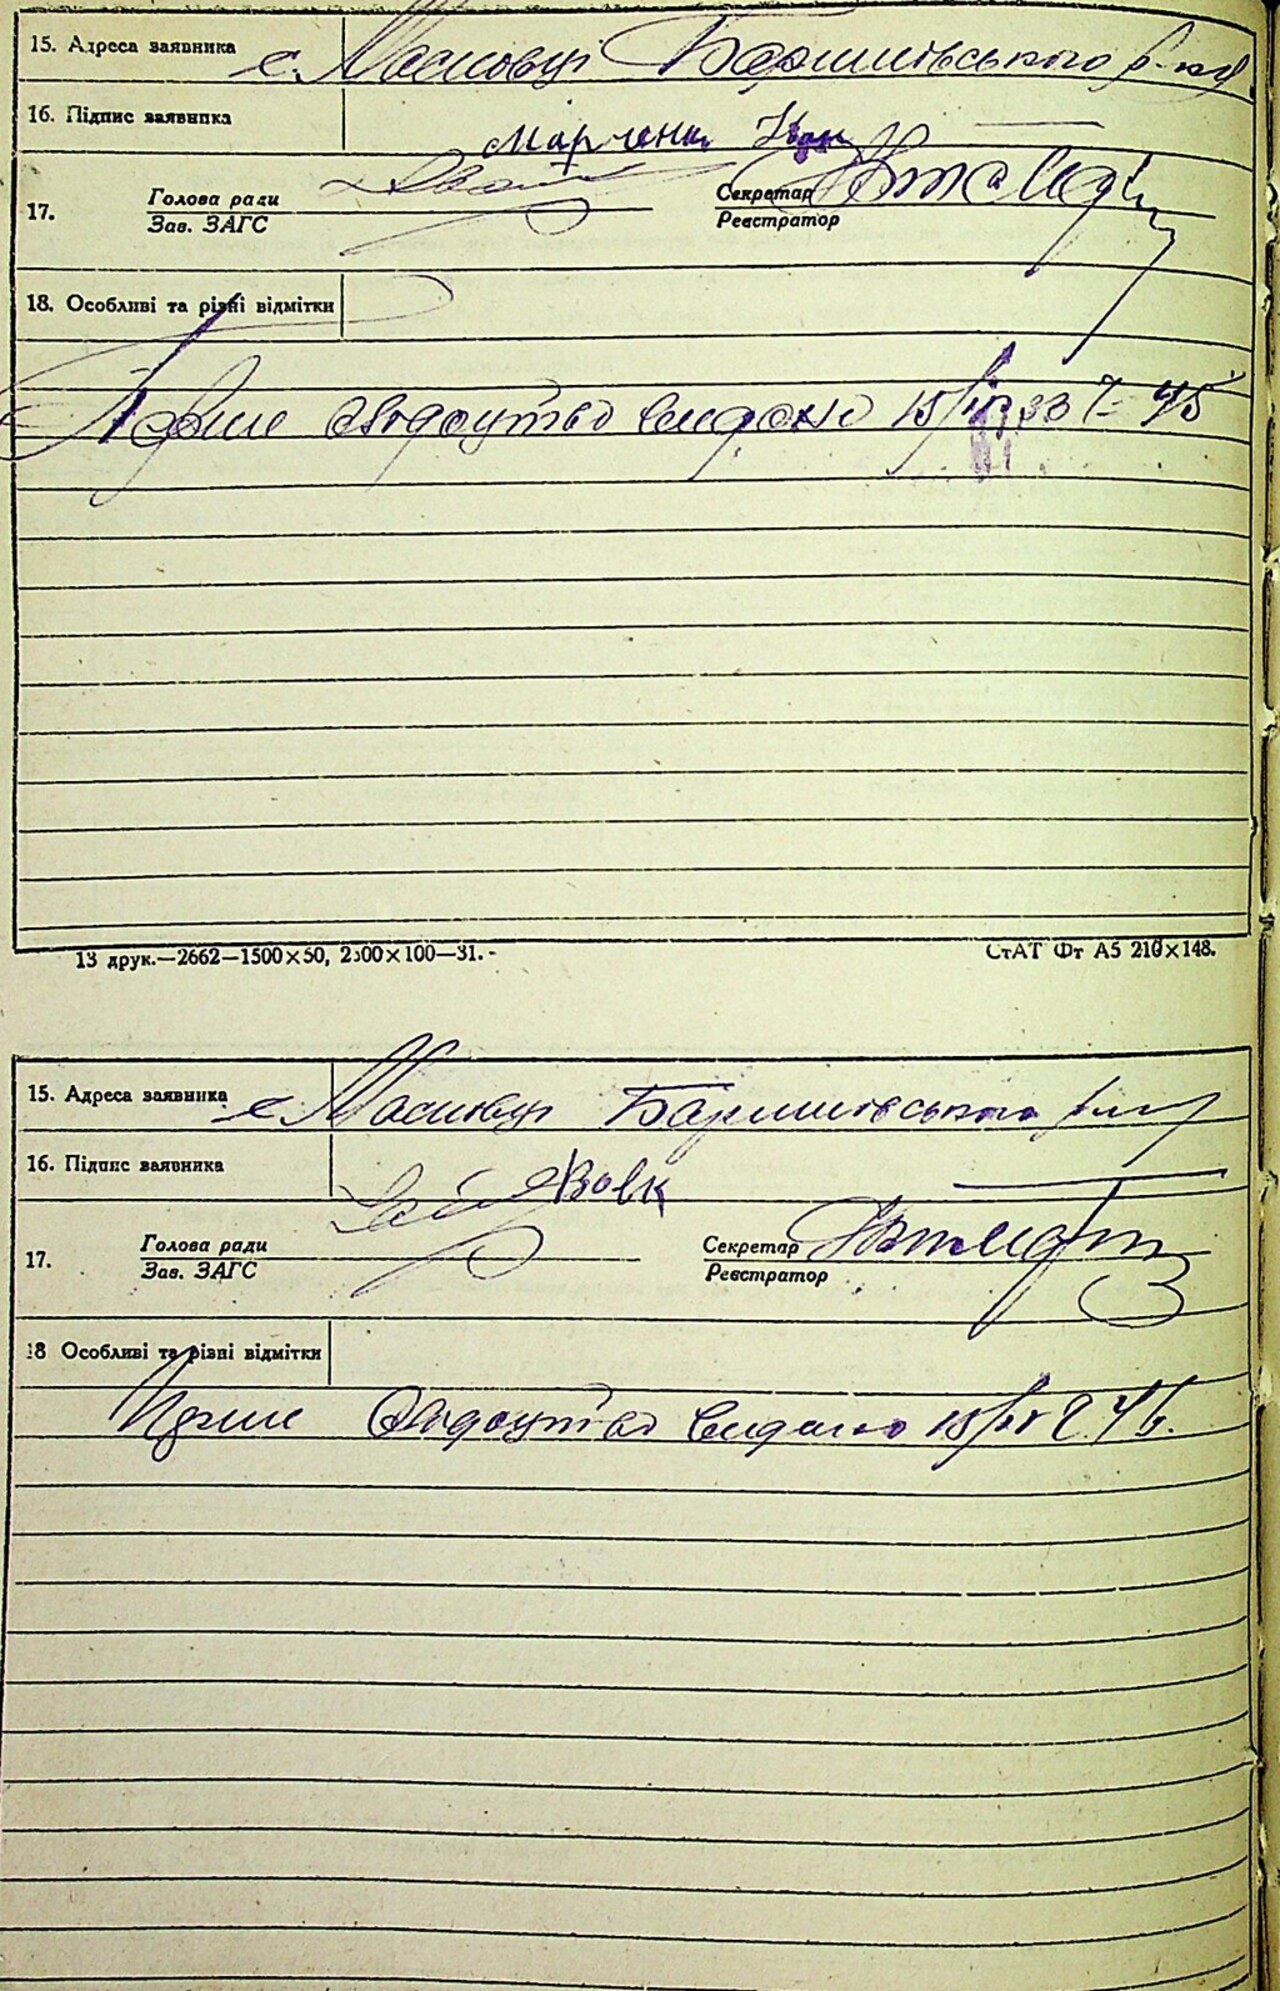 15. Адреса заявника с. Масківці Баришівського р-ну
16. Підпис заявника Марченко Іван
17. Голова ради Секретар
Зав. ЗАГС Реєстратор
18. Особливі та різні відмітки
Перше свідоцтво видано 15/ 33 № 45
13 друк.—2662—1500×50, 2500×100—31.-
СтАТ Фт А5 210×148.
15. Адреса заявника с. Масківці Баришівського р-ну
16. Підпис заявника Вовк
17. Голова ради Секретар
Зав. ЗАГС Реєстратор
18 Особливі та різні відмітки
Перше свідоцтво видано 15/ № 46.